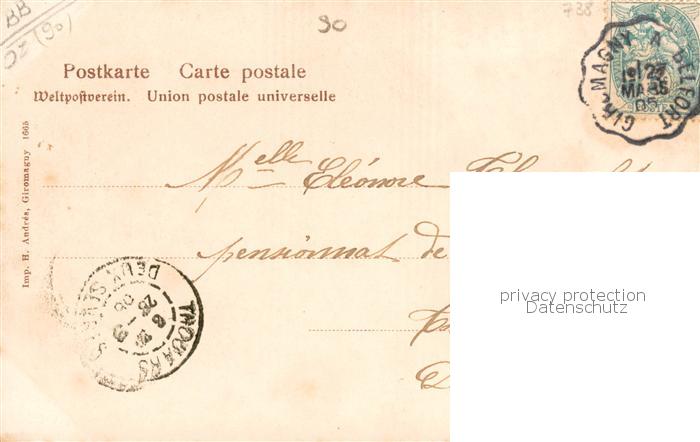 BB
OZ (90)
90
738
Postkarte Carte postale
Weltpostverein. Union postale universelle
GIR. MAGNY A BELFORT
27
MARS
05
Imp. H. Andrés, Giromagny 1665
Melle Eléonore
pensionnat de
THOUARS
DEUX SEVRES
privacy protection
Datenschutz